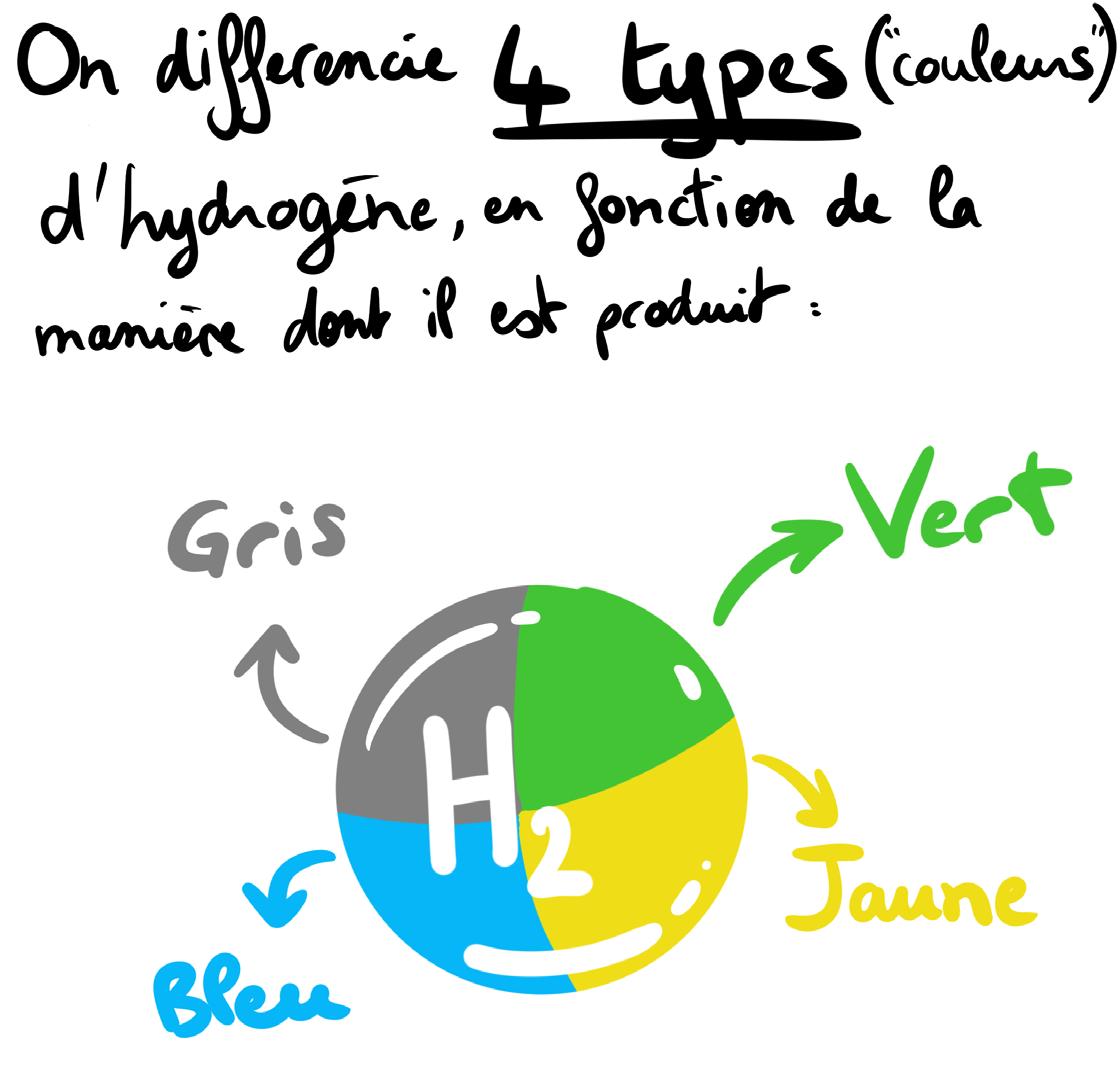 On differencie 4 types ("couleurs")
d'hydrogēne, en fonction de la
manière dont il est produit :
Gris
Vert
H2
Jaune
Bleu